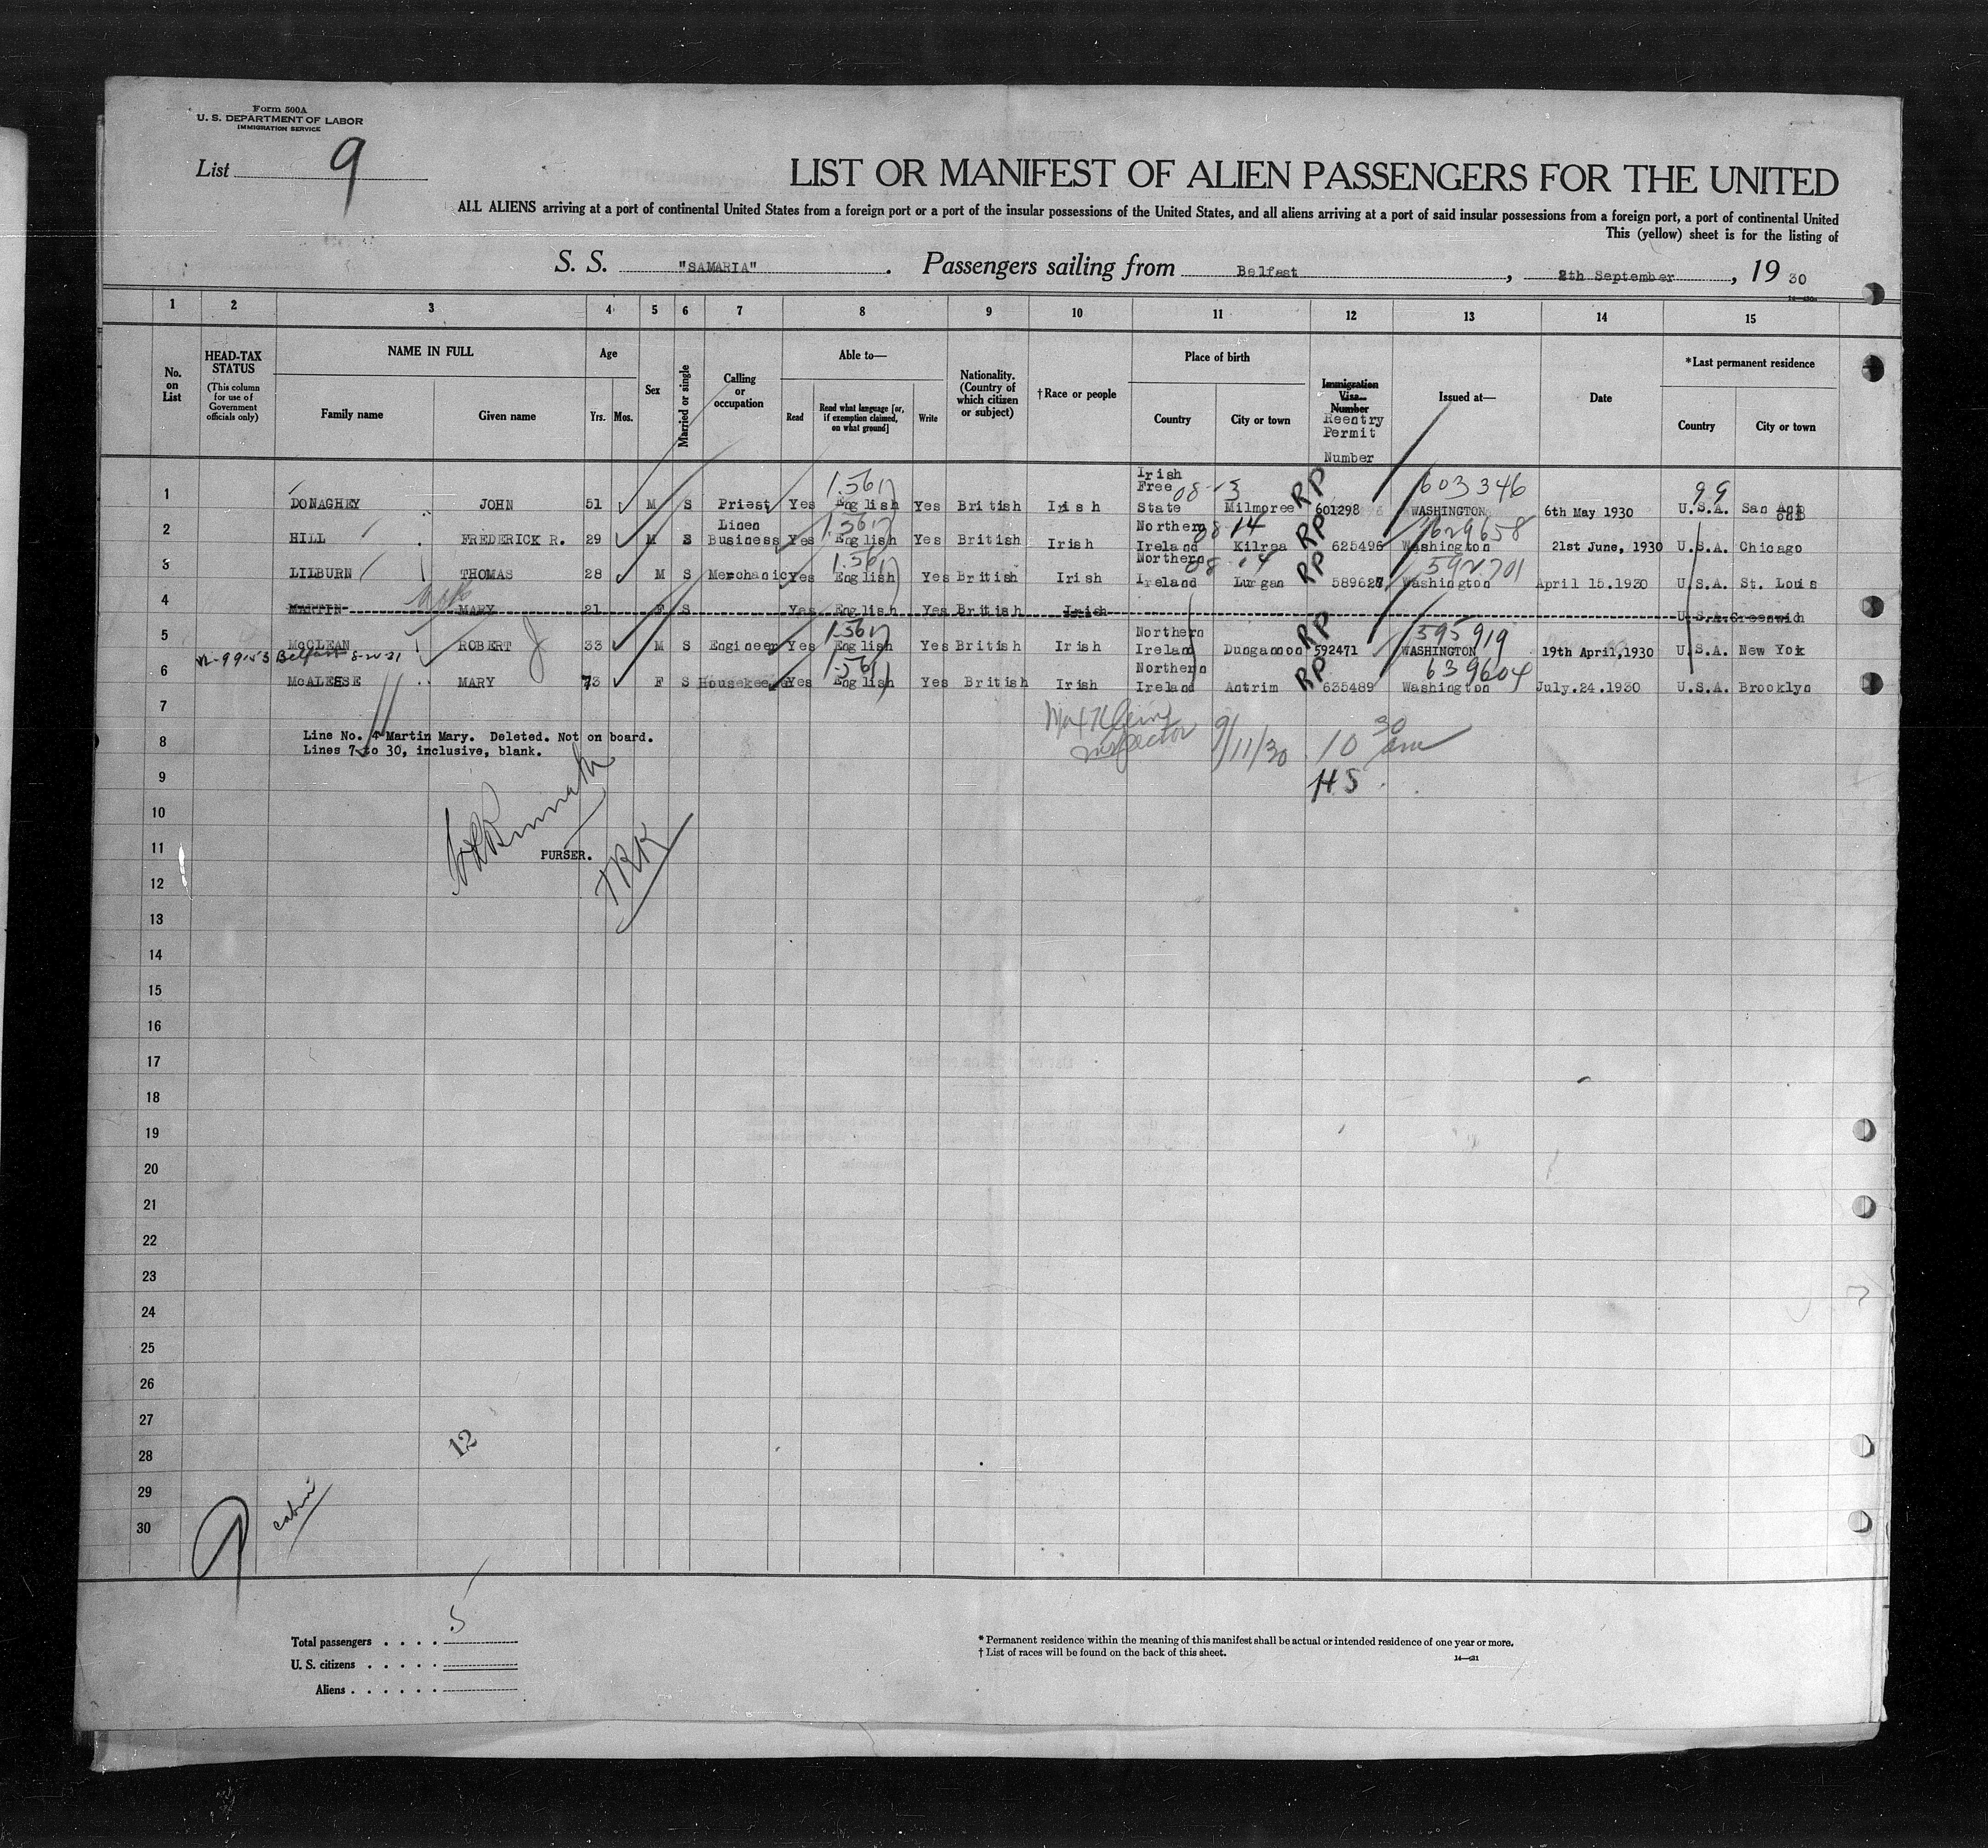 Form 500A
U. S. DEPARTMENT OF LABOR
IMMIGRATION SERVICE
List 9
LIST OR MANIFEST OF ALIEN PASSENGERS FOR THE UNITED
ALL ALIENS arriving at a port of continental United States from a foreign port or a port of the insular possessions of the United States, and all aliens arriving at a port of said insular possessions from a foreign port, a port of continental United
This (yellow) sheet is for the listing of
S. S. "SAMARIA". Passengers sailing from Belfast, th September, 19 30
1 2 3 4 5 6 7 8 9 10 11 12 13 14 15
No. on List
HEAD-TAX STATUS (This column for use of Government officials only)
NAME IN FULL
Family name Given name
Age
Yrs. Mos.
Sex
Married or single
Calling or occupation
Able to—
Read Read what language [or, if exemption claimed, on what ground] Write
Nationality. (Country of which citizen or subject)
†Race or people
Place of birth
Country City or town
Immigration Visa Number Reentry Permit Number
Issued at—
Date
*Last permanent residence
Country City or town
1 DONAGHEY JOHN 51 M S Priest Yes English Yes British Irish Irish Free State Milmoree RP 601298 603346 WASHINGTON 6th May 1930 99 U.S.A. San
2 HILL FREDERICK R. 29 M S Linen Business Yes English Yes British Irish Northern Ireland 08-14 Kilrea RP 625496 629658 Washington 21st June, 1930 U.S.A. Chicago
3 LILBURN THOMAS 28 M S Merchanic Yes English Yes British Irish Northern Ireland 08-14 Lurgan RP 589627 592701 Washington April 15.1930 U.S.A. St. Louis
4 MARTIN MARY 21 F S Yes English Yes British Irish U.S.A. Greenwich
5 McCLEAN ROBERT J 33 M S Engineer Yes English Yes British Irish Northern Ireland Dungannon RP 592471 595919 WASHINGTON 19th April,1930 U.S.A. New York
Belfast
6 McALEESE MARY 73 F S Housekeeper Yes English Yes British Irish Northern Ireland Antrim RP 635489 639604 Washington July.24.1930 U.S.A. Brooklyn
7
Inspector 9/11/30 10 30 am
8 Line No. 4 Martin Mary. Deleted. Not on board.
Lines 7 to 30, inclusive, blank.
9 HS
10
11 PURSER.
12
13
14
15
16
17
18
19
20
21
22
23
24
25
26
27
12
28
29
cabin
30
9
Total passengers . . . . 5
U. S. citizens . . . . .
Aliens . . . . . .
* Permanent residence within the meaning of this manifest shall be actual or intended residence of one year or more.
† List of races will be found on the back of this sheet.